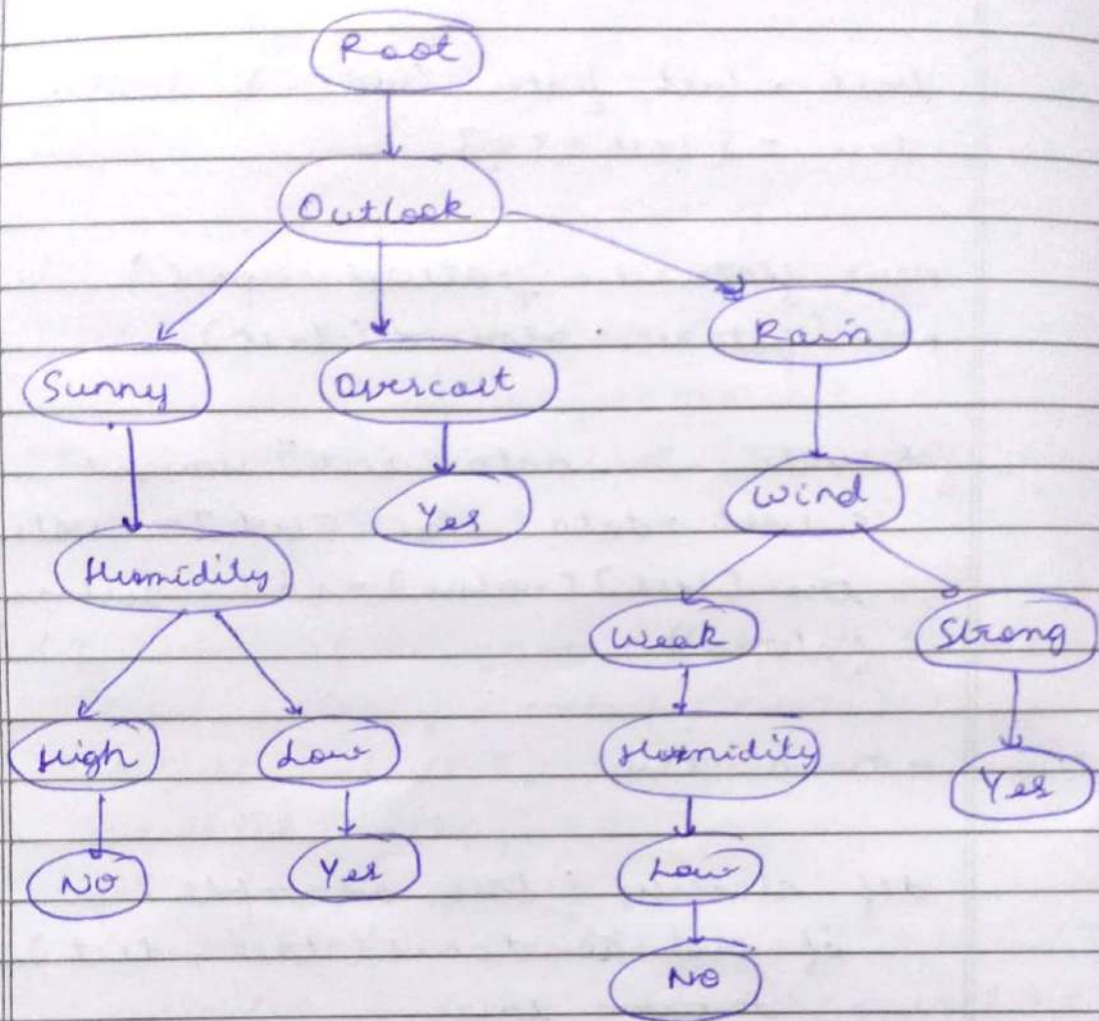 Root
Outlook
Sunny Overcast Rain
Yes Wind
Humidity
Weak Strong
High Low Humidity Yes
No Yes Low
No